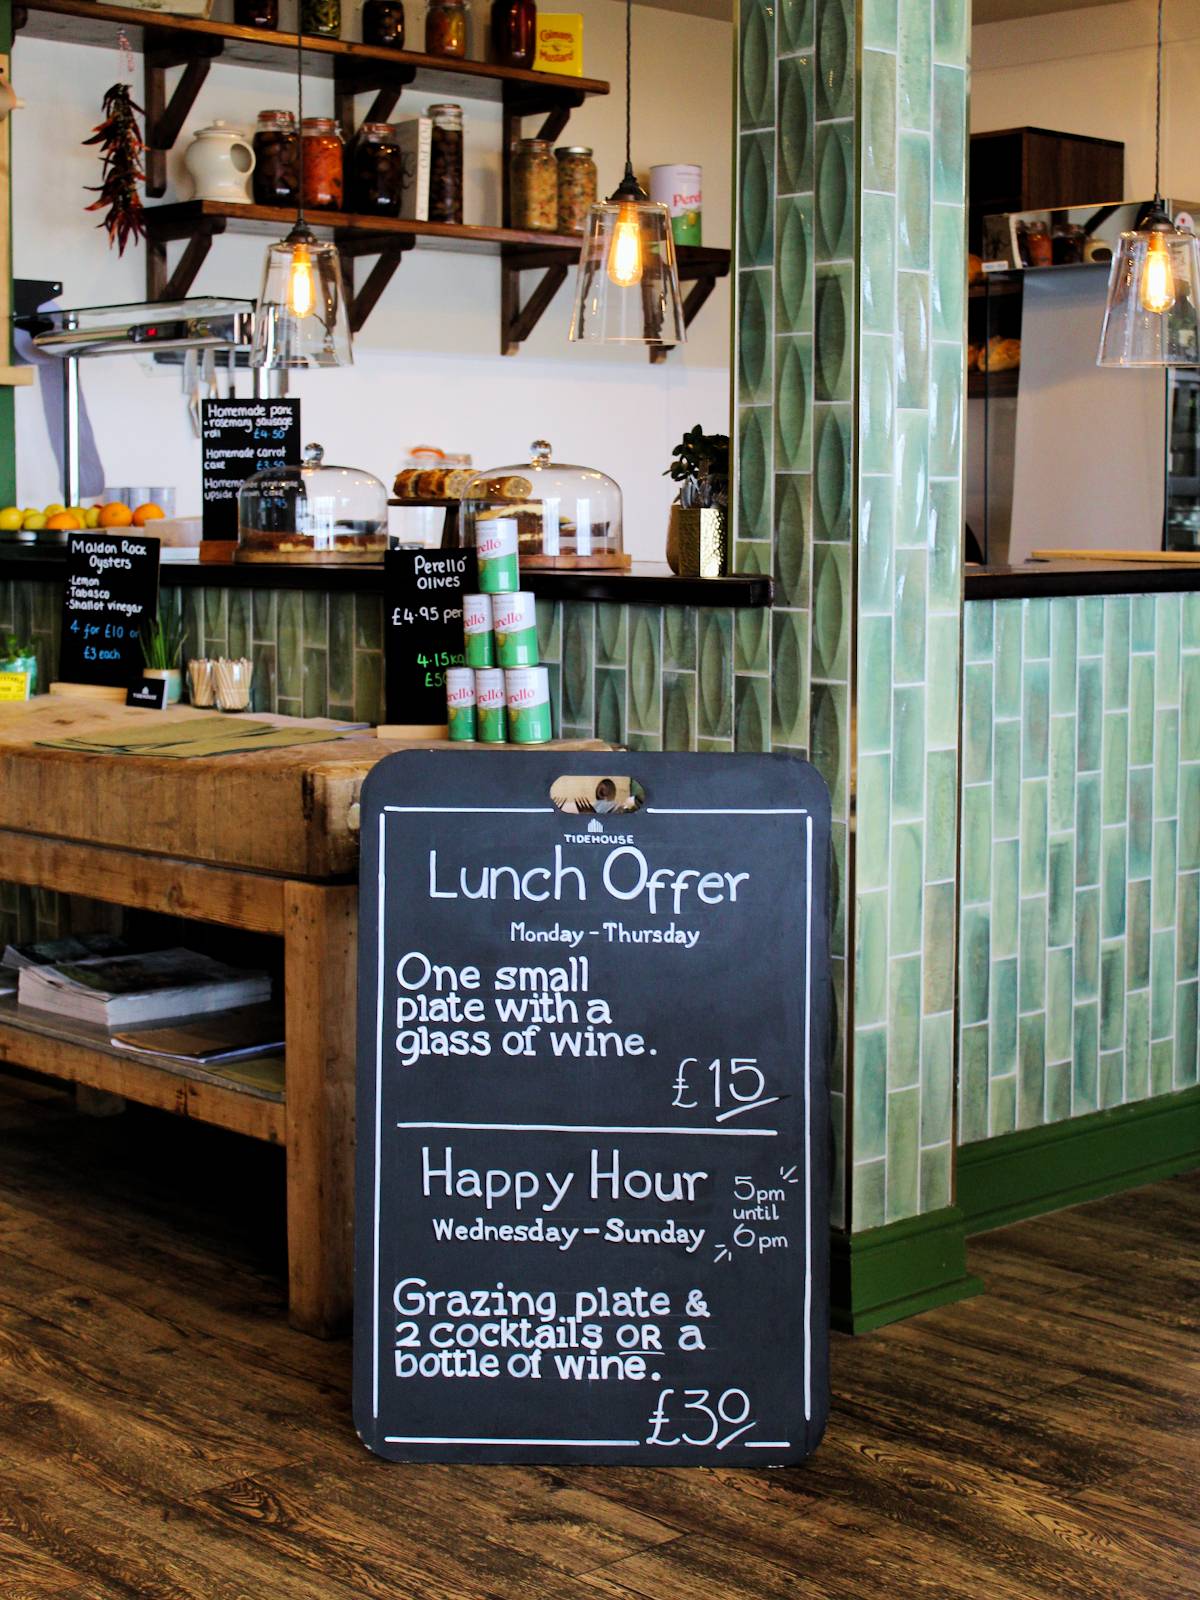 Colman's
Mustard
Perelló
Homemade pork
+ rosemary sausage
roll £4.50
Homemade carrot
cake £3.50
Homemade pineapple
upside down cake
Maldon Rock
Oysters
·Lemon
·Tabasco
·Shallot vinegar
4 for £10 or
£3 each
TIDEHOUSE
Perelló
Olives
£4.95 per
4.15kg
£50
rello
rello
rello
rello
rello
rello
TIDEHOUSE
Lunch Offer
Monday – Thursday
One small
plate with a
glass of wine.
£15
Happy Hour
Wednesday – Sunday
5pm
until
6pm
Grazing plate &
2 cocktails OR a
bottle of wine.
£30